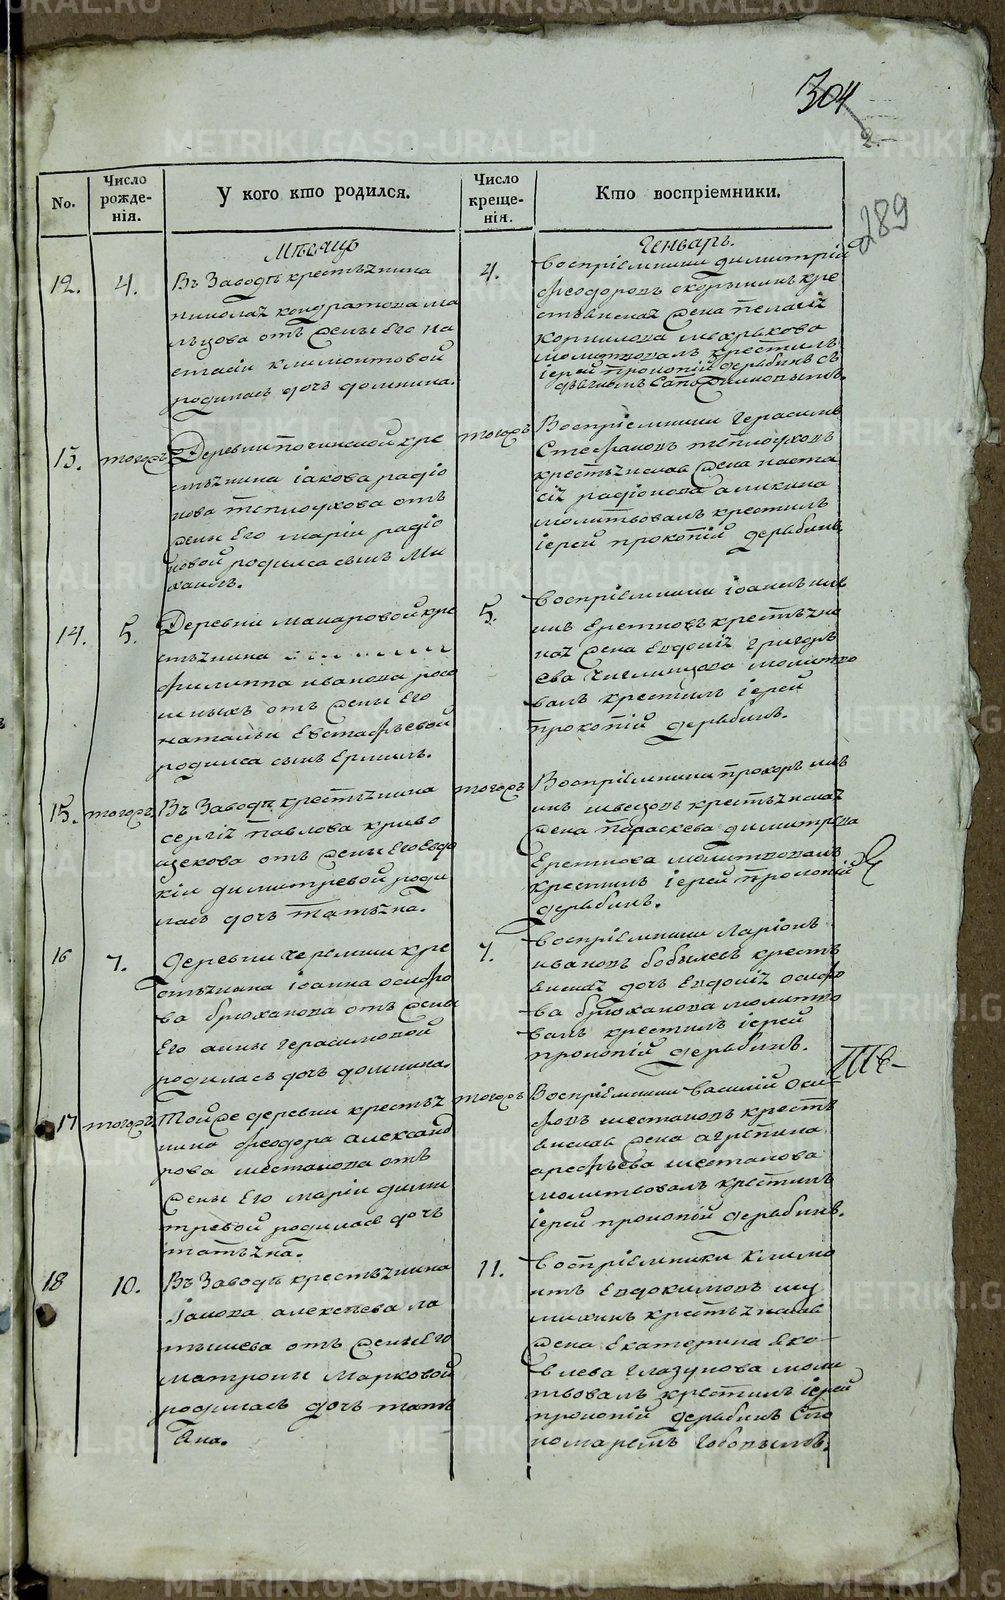 304
2.
289
No.
Число рожде- нія.
У кого кто родился.
Число креще- нія.
Кто воспріемники.
Мѣсяцъ
Генварь.
12.
4.
Въ Заводѣ крестьянина
николая кондратова ма
льцова отъ жены Его на
стасіи климонтовой
родилась дочь домнина.
4.
воспріемники димитрій
феодоровъ скорынинъ кре
стьянская жена пелагія
корнилова
молитвовалъ крестилъ
іерей прокопій дерябинъ съ
13.
тогожъ
Деревни починской кре
стьянина іакова радіо
нова теплоухова отъ
жены Его маріи радіо
новой родился сынъ Ми
хаилъ.
тогожъ
Воспріемники герасимъ
Стефановъ теплоуховъ
крестьянская жена наста
сія радіонова аликина
молитвовалъ крестилъ
іерей прокопій дерябинъ
14.
5.
Деревни макаровой кре
стьянина
филиппа иванова росо
шныхъ отъ жены Его
натальи Евстафьевой
родился сынъ Ермилъ.
5.
воспріемники іоаннъ ник
инъ Еретновъ крестьянс
кая жена Евдокія григорь
ева молитво
валъ крестилъ іерей
прокопій дерябинъ.
15.
тогожъ
Въ Заводѣ крестьянина
сергія павлова криво
щекова отъ жены Его Евдо
кіи димитревой роди
лась дочь татьяна.
тогожъ
Воспріемники прокоръ ник
инъ швецовъ крестьянская
жена параскева димитрева
Еретнова молитвовалъ
крестилъ іерей прокопій
дерябинъ.
16
7.
деревни черемши кре
стьянина іоанна осифо
ва брюханова отъ жены
Его анны герасимовой
родилась дочь домнина.
7.
воспріемники ларіонъ
ивановъ бобылевъ кресть
янская дочь Евдокія осифо
ва брюханова молитво
валъ крестилъ іерей
прокопій дерябинъ.
17
тогожъ
Той же деревни крестья
нина феодора алексан
рова шестакова отъ
жены Его маріи дими
тревой родилась дочь
татьяна.
тогожъ
Воспріемники василій оси
фовъ шестаковъ кресть
янская жена агрепина
арефьева шестакова
молитвовалъ крестилъ
іерей прокопій дерябинъ.
18
10.
Въ Заводѣ крестьянина
Іакова алексѣева ла
тышева отъ жены Его
матроны Марковой
родилась дочь тать
яна.
11.
воспріемники климо
нтъ Евдокимовъ шу
милинъ крестьянская
жена Екатерина яко
влева глазунова моли
твовалъ крестилъ іерей
прокопій дерябинъ съ по
номаремъ
METRIKI.GASO-URAL.RU